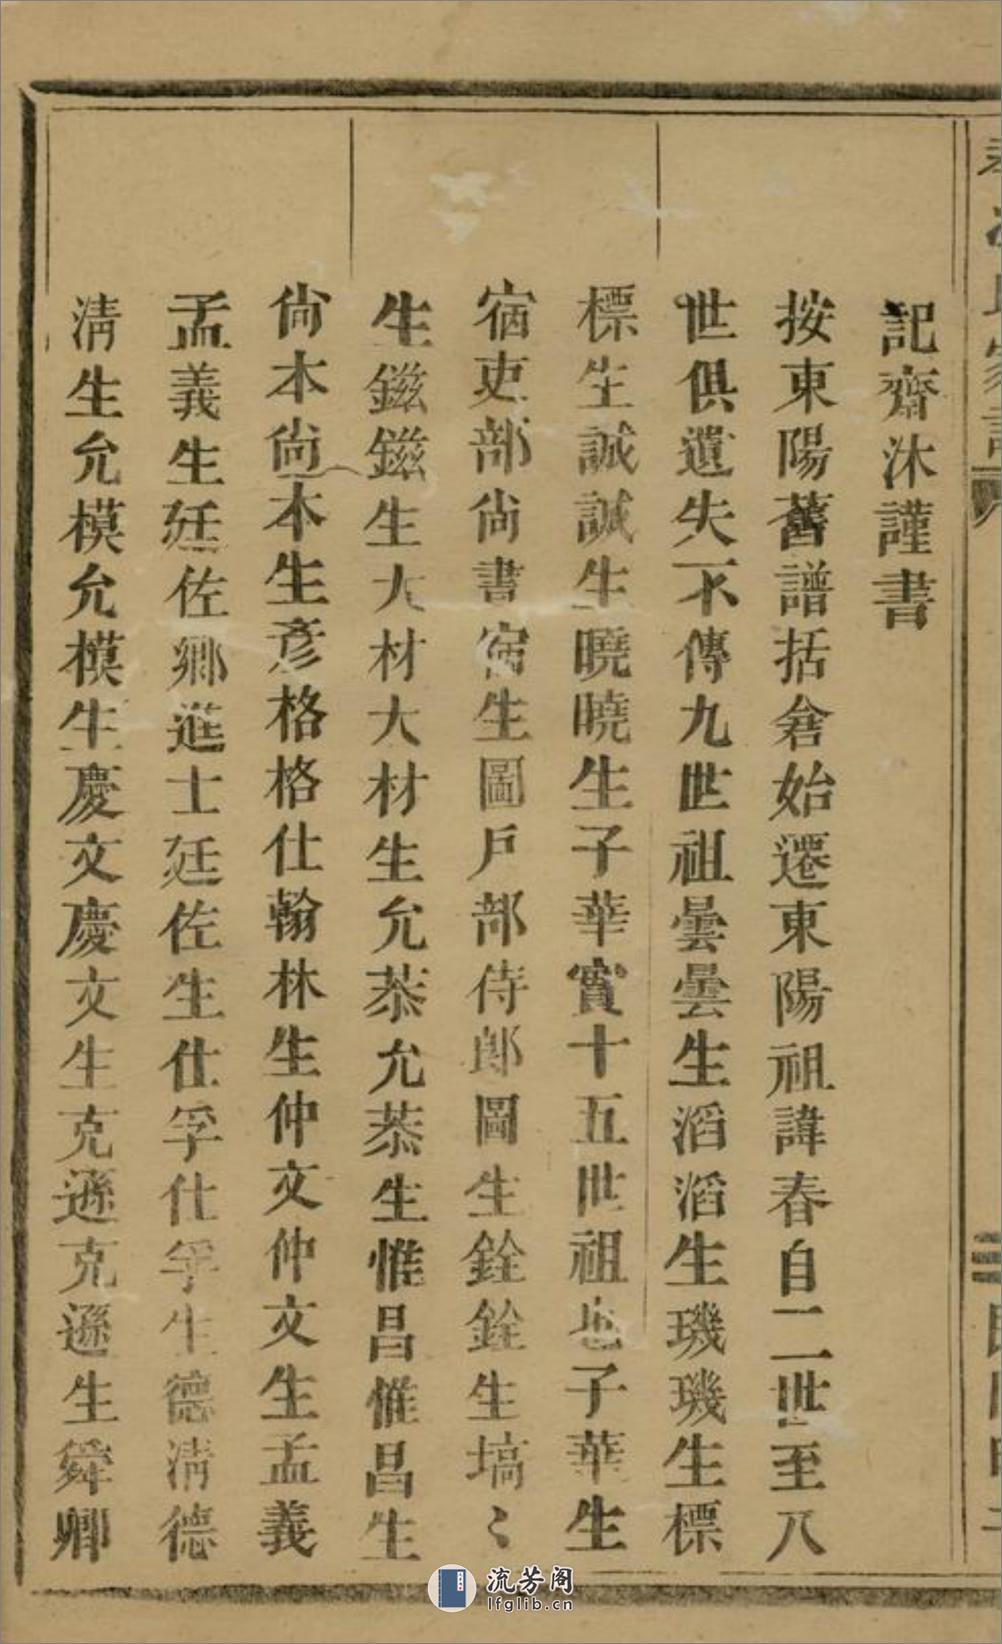 記齋沐謹書
按東陽舊譜括倉始遷東陽祖諱春自二世至八
世俱遺失不傳九世祖曇曇生滔滔生璣璣生標
標生誠誠生曉曉生子華實十五世祖也子華生
宿吏部尙書宿生圖戶部侍郎圖生銓銓生塙〻
生鎡鎡生大材大材生允恭允恭生惟昌惟昌生
尙本尙本生彥格格仕翰林生仲文仲文生孟義
孟義生廷佐鄉進士廷佐生仕孚仕孚生德淸德
淸生允模允模生慶文慶文生克遜克遜生舜卿
流芳阁
lfglib.cn